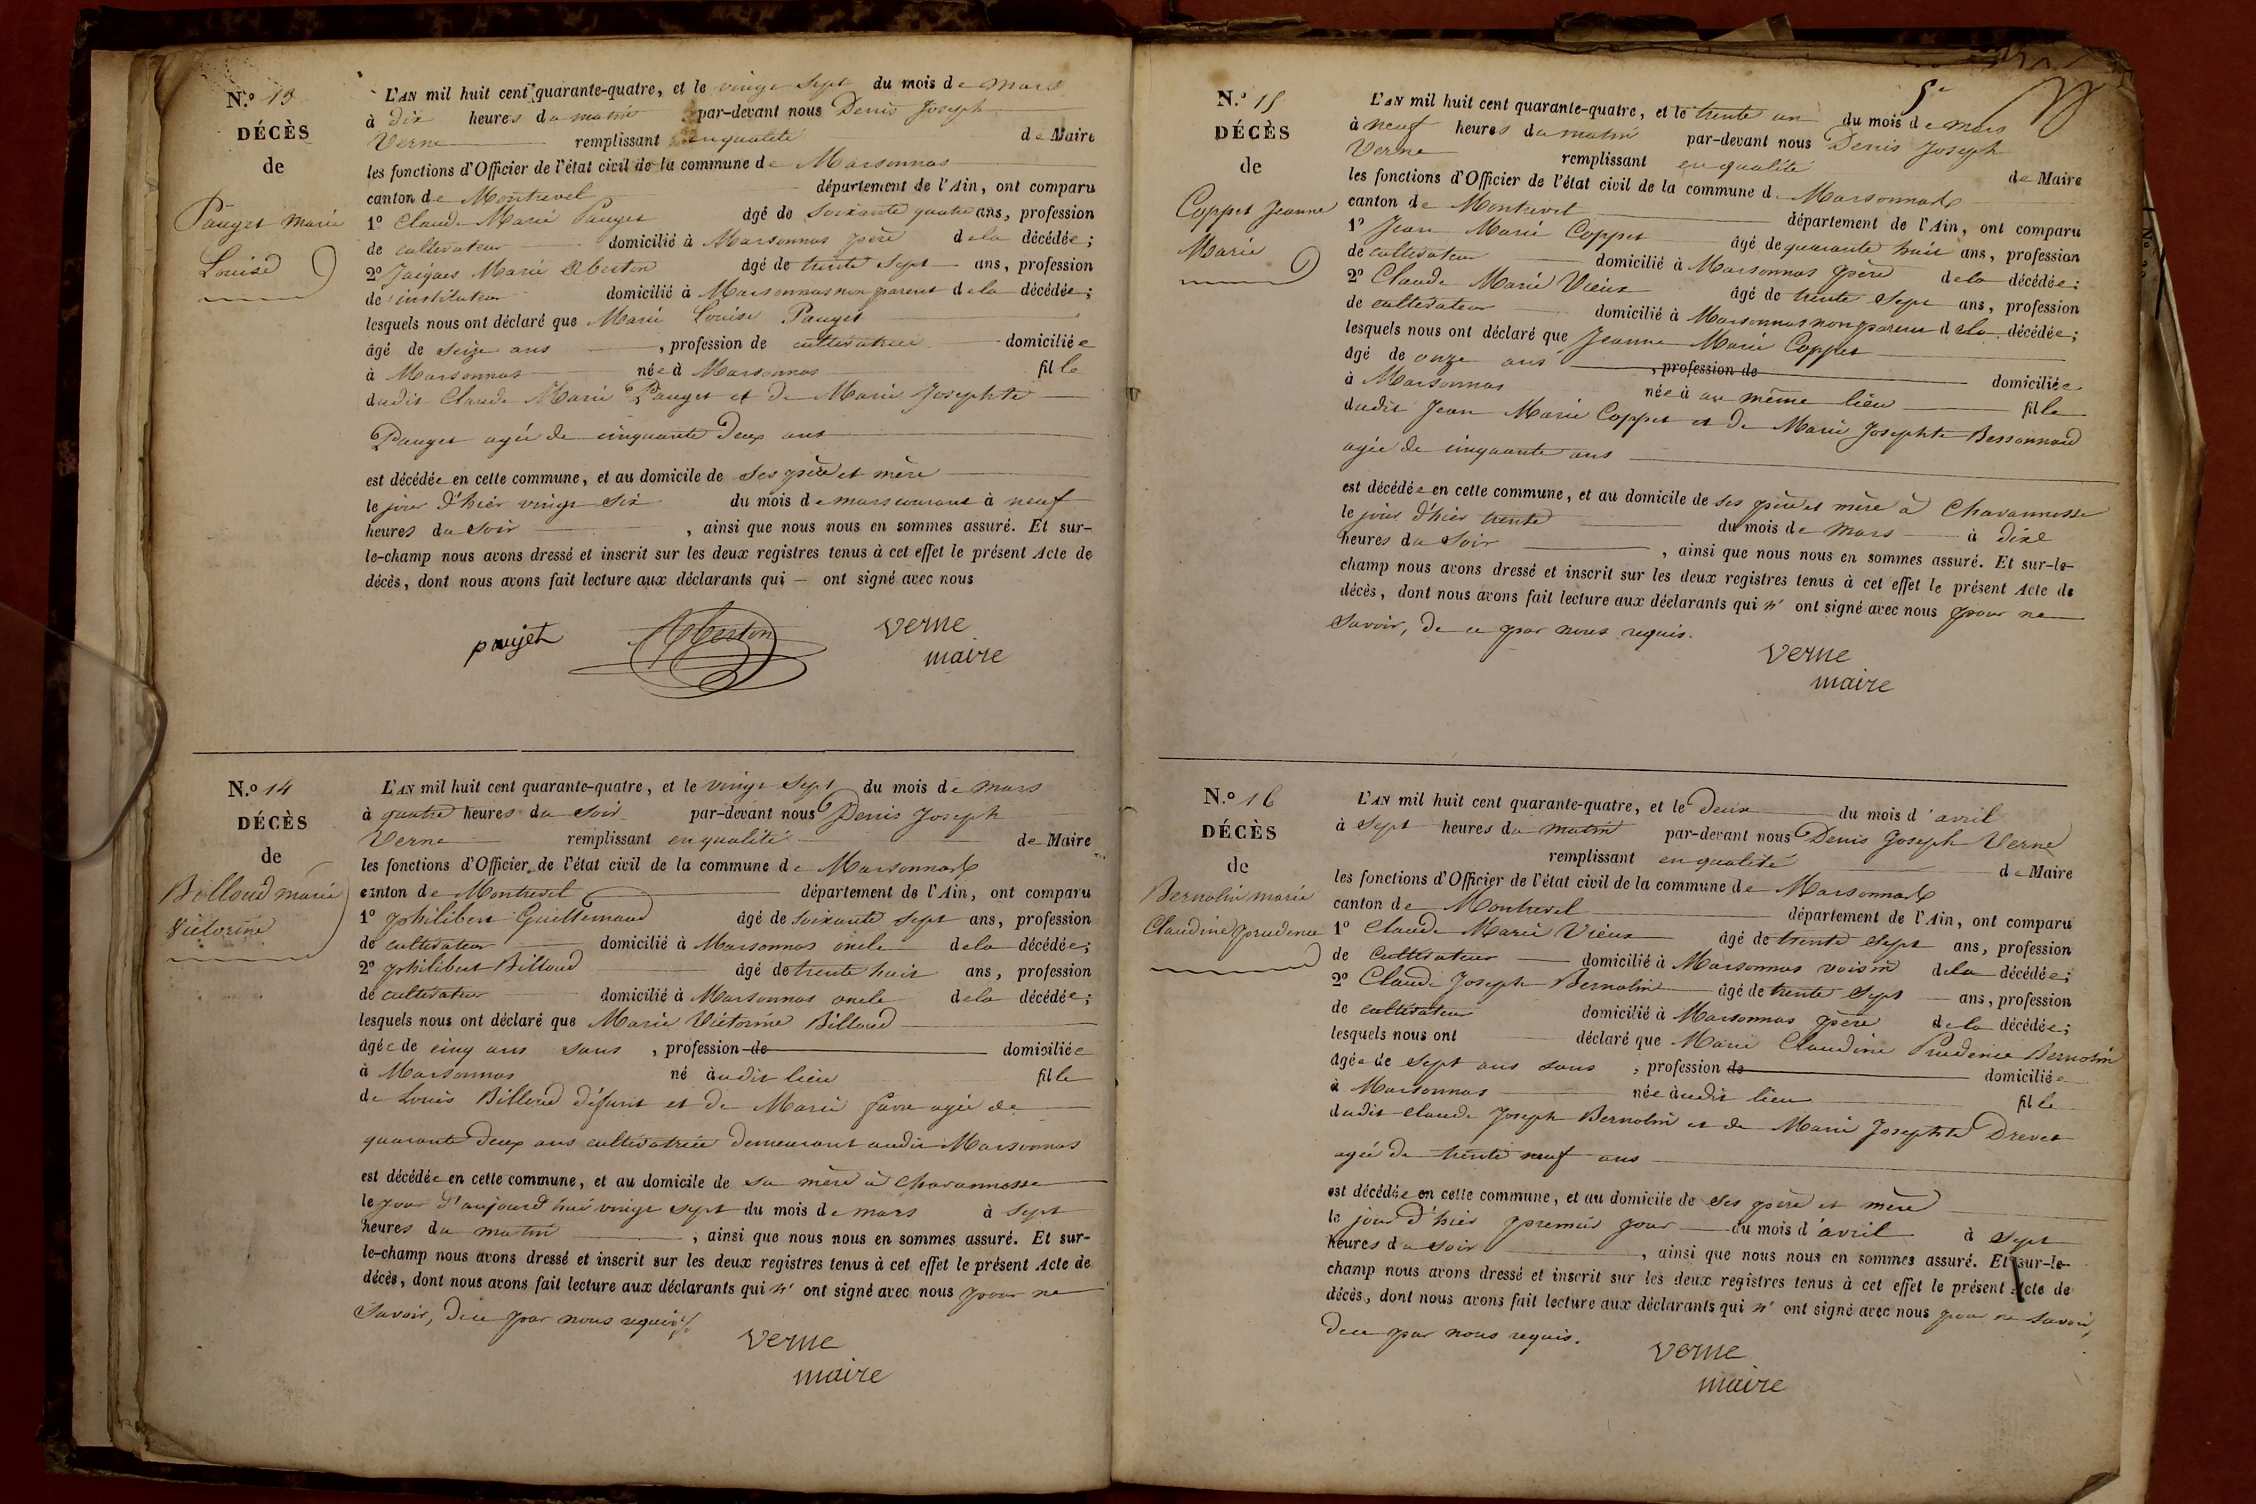 N.º 13
DÉCÈS
de
Pauget Marie
Louise
L'AN mil huit cent quarante-quatre, et le vingt sept du mois de mars
à dix heures du matin par-devant nous Denis Joseph
Verne remplissant en qualité de Maire
les fonctions d'Officier de l'état civil de la commune de Marsonnas
canton de Montrevel département de l'Ain, ont comparu
1º Claude Marie Pauget âgé de soixante quatre ans, profession
de cultivateur domicilié à Marsonnas père de la décédée;
2º Jacques Marie Alberton âgé de trente sept ans, profession
de instituteur domicilié à Marsonnas non parent de la décédée;
lesquels nous ont déclaré que Marie Louise Pauget
âgé de seize ans, profession de cultivatrice domiciliée
à Marsonnas née à Marsonnas fille
dudit Claude Marie Pauget et de Marie Josephte
Pauget agée de cinquante deux ans
est décédée en cette commune, et au domicile de ses père et mère
le jour d'hier vingt six du mois de mars courant à neuf
heures du soir, ainsi que nous nous en sommes assuré. Et sur-
le-champ nous avons dressé et inscrit sur les deux registres tenus à cet effet le présent Acte de
décès, dont nous avons fait lecture aux déclarants qui — ont signé avec nous
paujet Alberton verne
maire
N.º 14
DÉCÈS
de
Billoud marie
Victorine
L'AN mil huit cent quarante-quatre, et le vingt sept du mois de mars
à quatre heures du soir par-devant nous Denis Joseph
Verne remplissant en qualité de Maire
les fonctions d'Officier de l'état civil de la commune de Marsonnas
canton de Montrevel département de l'Ain, ont comparu
1º philibert Guillemaud âgé de soixante sept ans, profession
de cultivateur domicilié à Marsonnas oncle de la décédée;
2º philibert Billoud âgé de trente huit ans, profession
de cultivateur domicilié à Marsonnas oncle de la décédée;
lesquels nous ont déclaré que Marie Victorine Billoud
âgée de cinq ans sans, profession de domiciliée
à Marsonnas né audit lieu fille
de Louis Billoud défunt et de Marie favre agée de
quarante deux ans cultivatrice demeurant audit Marsonnas
est décédée en cette commune, et au domicile de sa mère à Chavannosse
le jour d'aujourd'hui vingt sept du mois de mars à sept
heures du matin, ainsi que nous nous en sommes assuré. Et sur-
le-champ nous avons dressé et inscrit sur les deux registres tenus à cet effet le présent Acte de
décès, dont nous avons fait lecture aux déclarants qui n' ont signé avec nous pour ne
savoir, de ce par nous requis
verne
maire
5e
N.º 15
DÉCÈS
de
Coppet Jeanne
Marie
L'AN mil huit cent quarante-quatre, et le trente un du mois de mars
à neuf heures du matin par-devant nous Denis Joseph
Verne remplissant en qualité de Maire
les fonctions d'Officier de l'état civil de la commune d. Marsonnas
canton de Montrevel département de l'Ain, ont comparu
1º Jean Marie Coppet âgé de quarante huit ans, profession
de cultivateur domicilié à Marsonnas père de la décédée;
2º Claude Marie Vieux âgé de trente sept ans, profession
de cultivateur domicilié à Marsonnas non parent de la décédée;
lesquels nous ont déclaré que Jeanne Marie Coppet
âgé de onze ans, profession de domiciliée
à Marsonnas née à au même lieu fille
dudit Jean Marie Coppet et de Marie Josephte Bessonnard
agée de cinquante ans
est décédée en cette commune, et au domicile de ses père et mère à Chavannosse
le jour d'hier trente du mois de mars à dixe
heures du soir, ainsi que nous nous en sommes assuré. Et sur-le-
champ nous avons dressé et inscrit sur les deux registres tenus à cet effet le présent Acte de
décès, dont nous avons fait lecture aux déclarants qui n' ont signé avec nous pour ne
savoir, de ce par nous requis.
verne
maire
N.º 16
DÉCÈS
de
Bernolin marie
Claudine prudence
L'AN mil huit cent quarante-quatre, et le deux du mois d'avril
à sept heures du matin par-devant nous Denis Joseph Verne
remplissant en qualité de Maire
les fonctions d'Officier de l'état civil de la commune de Marsonnas
canton de Montrevel département de l'Ain, ont comparu
1º Claude Marie Vieux âgé de trente sept ans, profession
de cultivateur domicilié à Marsonnas voisin de la décédée;
2º Claude Joseph Bernolin âgé de trente sept ans, profession
de cultivateur domicilié à Marsonnas père de la décédée;
lesquels nous ont déclaré que Marie Claudine Prudence Bernolin
âgée de sept ans sans, profession de domiciliée
à Marsonnas née audit lieu fille
dudit Claude Joseph Bernolin et de Marie Josephte Drevet
agée de trente neuf ans
est décédée en cette commune, et au domicile de ses père et mère
le jour d'hier premier jour du mois d'avril à sept
heures du soir, ainsi que nous nous en sommes assuré. Et sur-le-
champ nous avons dressé et inscrit sur les deux registres tenus à cet effet le présent Acte de
décès, dont nous avons fait lecture aux déclarants qui n' ont signé avec nous pour ne savoir,
de ce par nous requis.
verne
maire